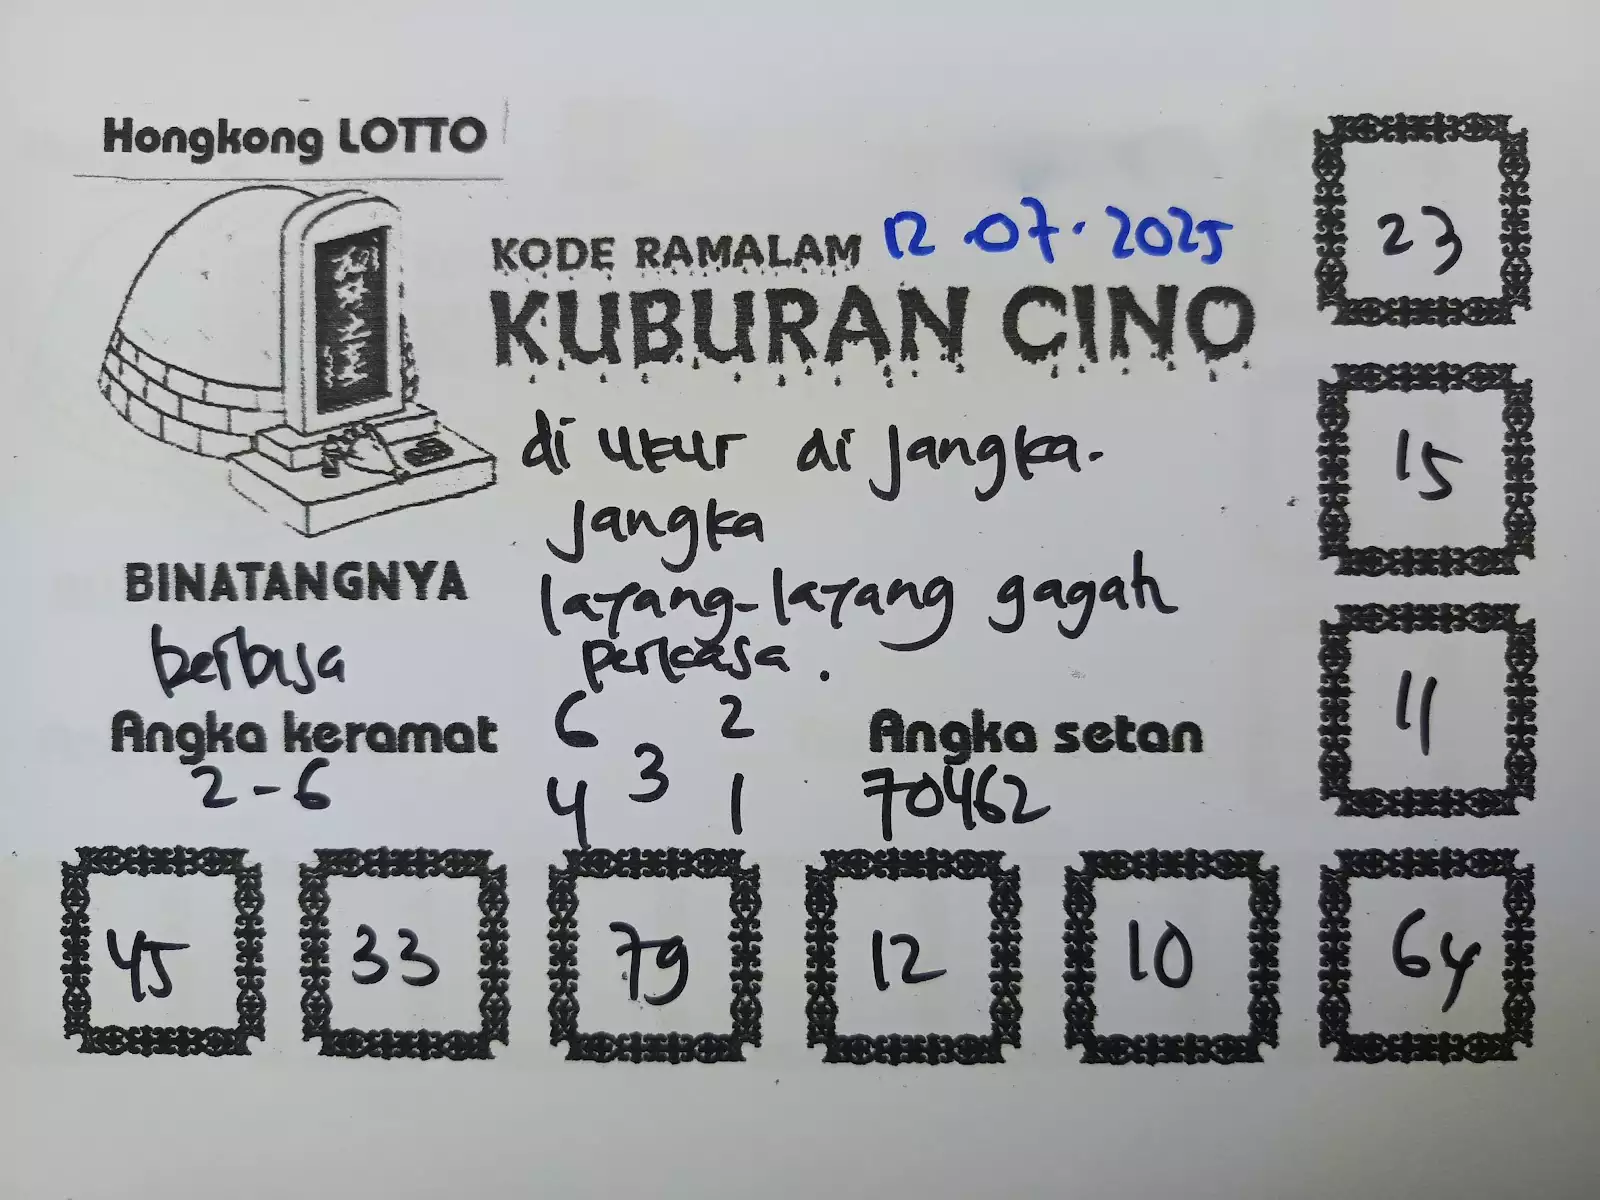 Hongkong LOTTO
KODE RAMALAM 12.07.2025
KUBURAN CINO
di ukur di jangka.
jangka
layang-layang gagah
perkasa.
BINATANGNYA
berbisa
Angka keramat
2-6
6 2
3
4 1
Angka setan
70462
23
15
11
45 33 79 12 10 64